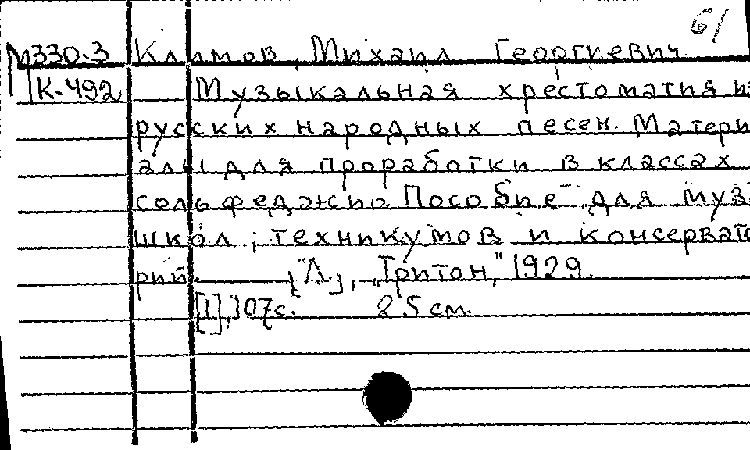 б/
М330.3 Климов, Михаил Георгиевич.
К-492 Музыкальная хрестоматия из
русских народных песен. Матери
алы для проработки в классах
сольфеджио Пособие для муз.
школ, техникумов и консервато
рий. [Л.], "Тритон," 1929.
[1], 107с. 25 см.